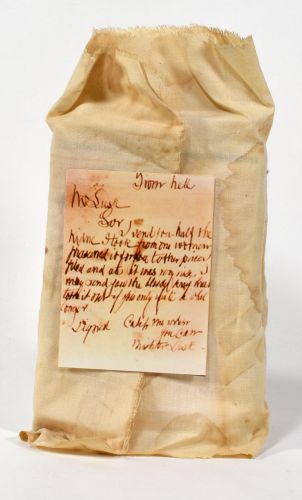 From hell
Mr Lusk
Sor
I send you half the
Kidne I took from one women
prasarved it for you tother piece I
fried and ate it was very nise I
may send you the bloody knif that
took it out if you only wate a whil
longer
signed Catch me when
you Can
Mishter Lusk